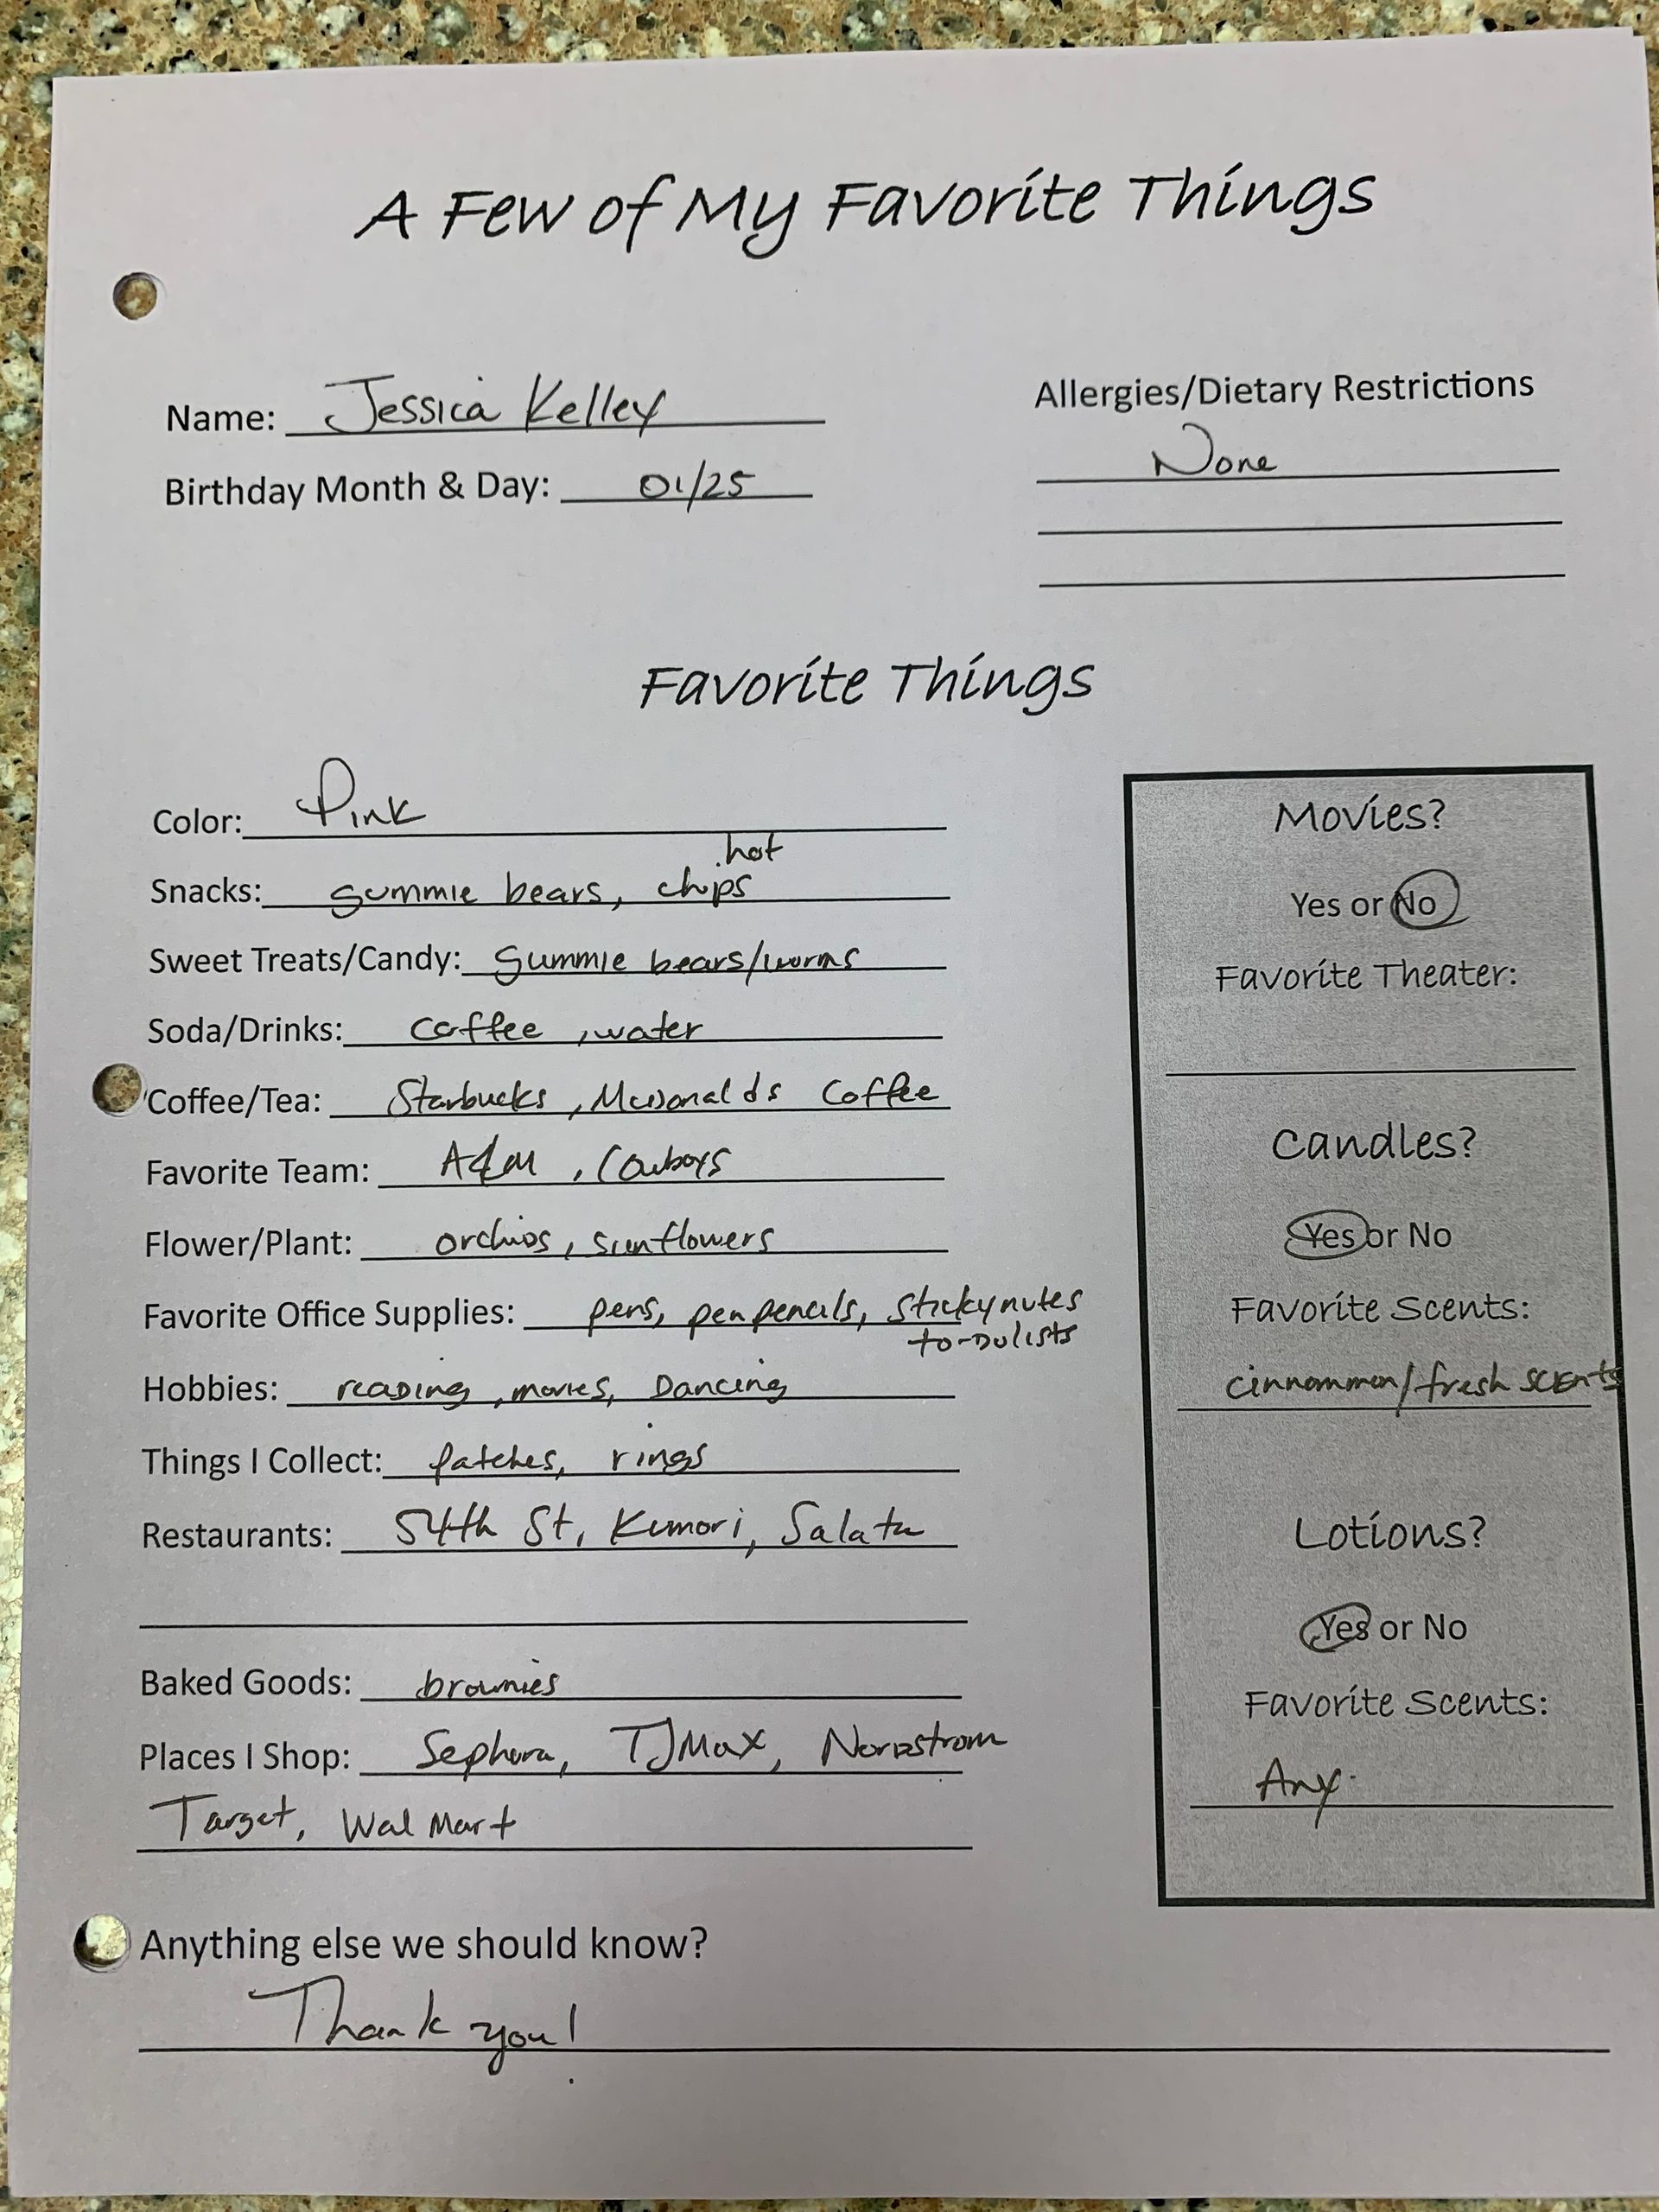 A Few of My Favorite Things
Name: Jessica Kelley
Birthday Month & Day: 01/25
Allergies/Dietary Restrictions
None
Favorite Things
Color: Pink
hot
Snacks: gummie bears, chips
Sweet Treats/Candy: gummie bears/worms
Soda/Drinks: coffee, water
Coffee/Tea: Starbucks, McDonalds Coffee
Favorite Team: A&M, Cowboys
Flower/Plant: orchids, sunflowers
Favorite Office Supplies: pens, pencils, stickynotes
to-Do lists
Hobbies: reading, movies, Dancing
Things I Collect: patches, rings
Restaurants: 54th St, Kumori, Salata
Baked Goods: brownies
Places I Shop: Sephora, TJMax, Nordstrom
Target, WalMart
Movies?
Yes or No
Favorite Theater:
Candles?
Yes or No
Favorite Scents:
cinnommon/fresh scents
Lotions?
Yes or No
Favorite Scents:
Any.
Anything else we should know?
Thank you!